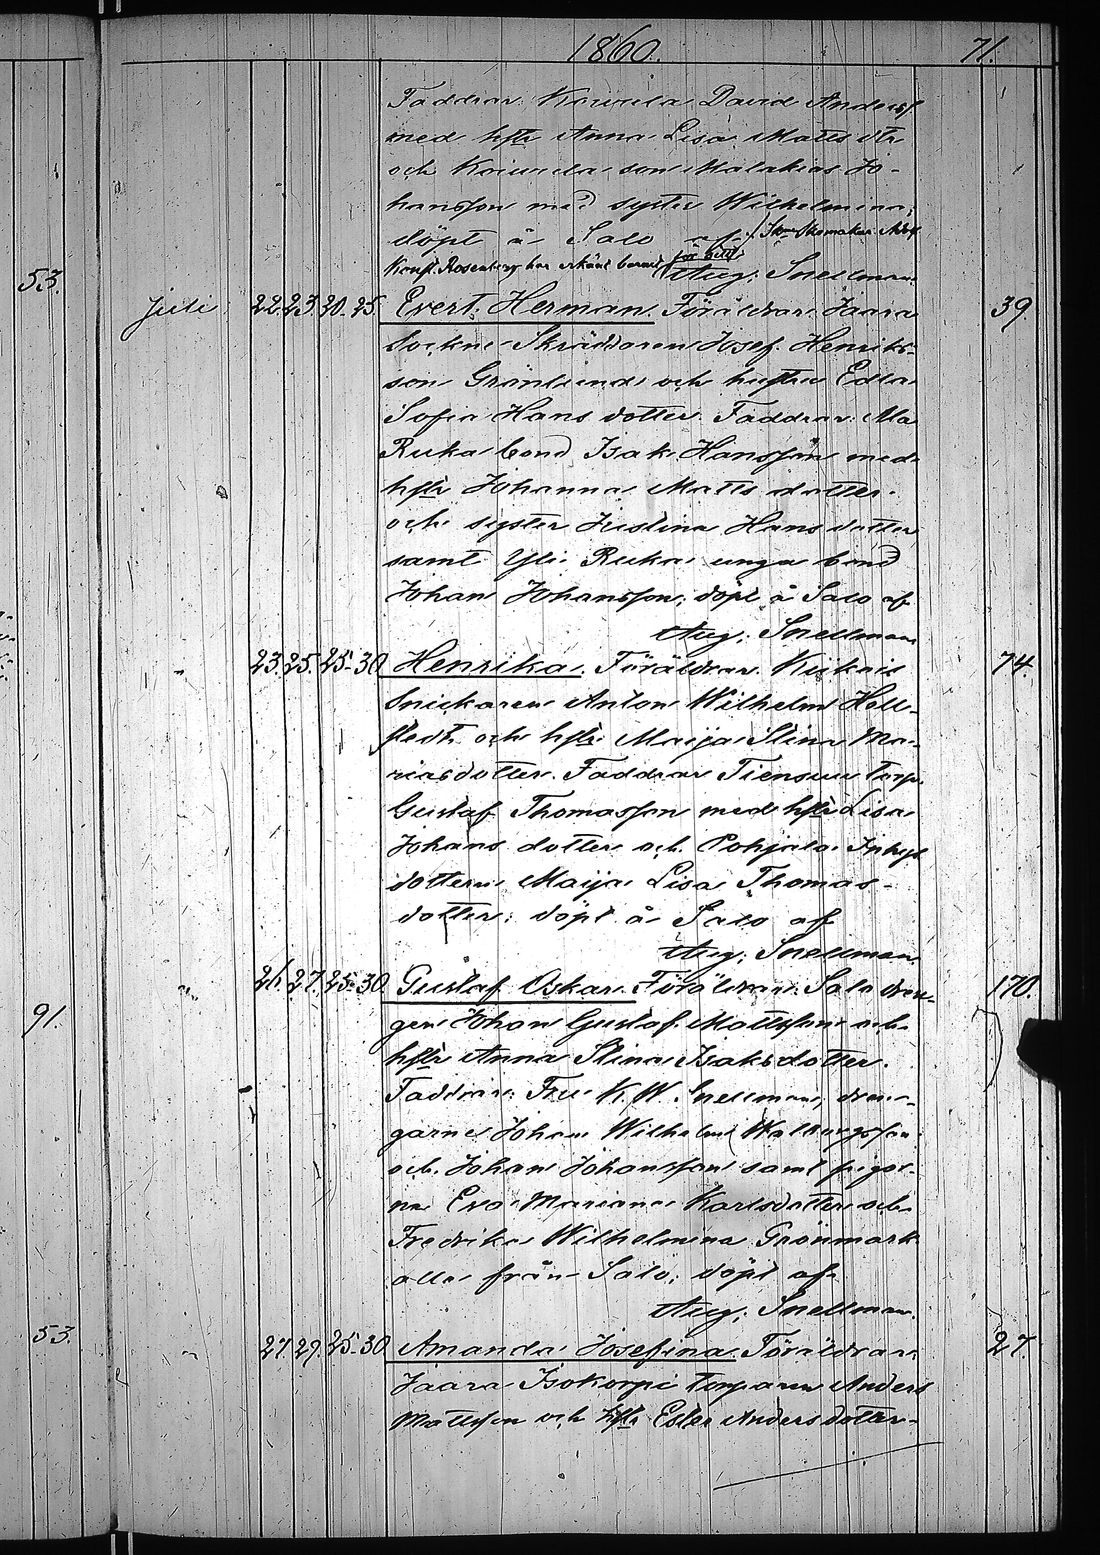 1860. 71.
Faddrar: David Anderss.
med hstr Anna Lisa Matts dtr
och son Malakias Jo-
hansson med syster Wilhelmina;
döpt å Salo af
Konst. Rosenberg har erkänt barnet för sitt
Aug. Snellman.
53.
Juli 22. 23. 20. 25. Evert Herman. Föräldrar: Jaara 39.
Sockne Skräddaren Josef Henriks-
son Grönlund och hustru Edla
Sofia Hans dotter. Faddrar: Ala
Ruka bond Isak Hansson med
hstr Johanna Matts dotter
och syster Justina Hans dotter
samt Yli Ruka unga bond
Johan Johansson; döpt å Salo af
Aug. Snellman
" 23. 25. 25-30 Henrika. Föräldrar: 74.
Snickaren Anton Wilhelm Hell-
stedt och hstr Maija Stina Ma-
riasdotter. Faddrar Tiensuu torp.
Gustaf Thomasson med hstr Lisa
Johans dotter och Pohjala Inhys
dottern Maija Lisa Thomas-
dotter; döpt å Salo af
Aug. Snellman.
" 26. 27. 25-30. Gustaf Oskar. Föräldrar: Salo drän- 170.
91.
gen Johan Gustaf Mattsson och
hstr Anna Stina Isaksdotter.
Faddrar: Fru K. W. Snellman, drän-
garne Johan Wilhelm
och Johan Johansson samt pigor-
na Eva Mariana Karlsdotter och
Fredrika Wilhelmina Grönmark
alla från Salo; döpt af
Aug. Snellman.
53.
" 27 29. 25-30 Amanda Josefina. Föräldrar: 27.
Jaara Isokorpi torparen Anders
Mattsson och hstr Ester Anders dotter-